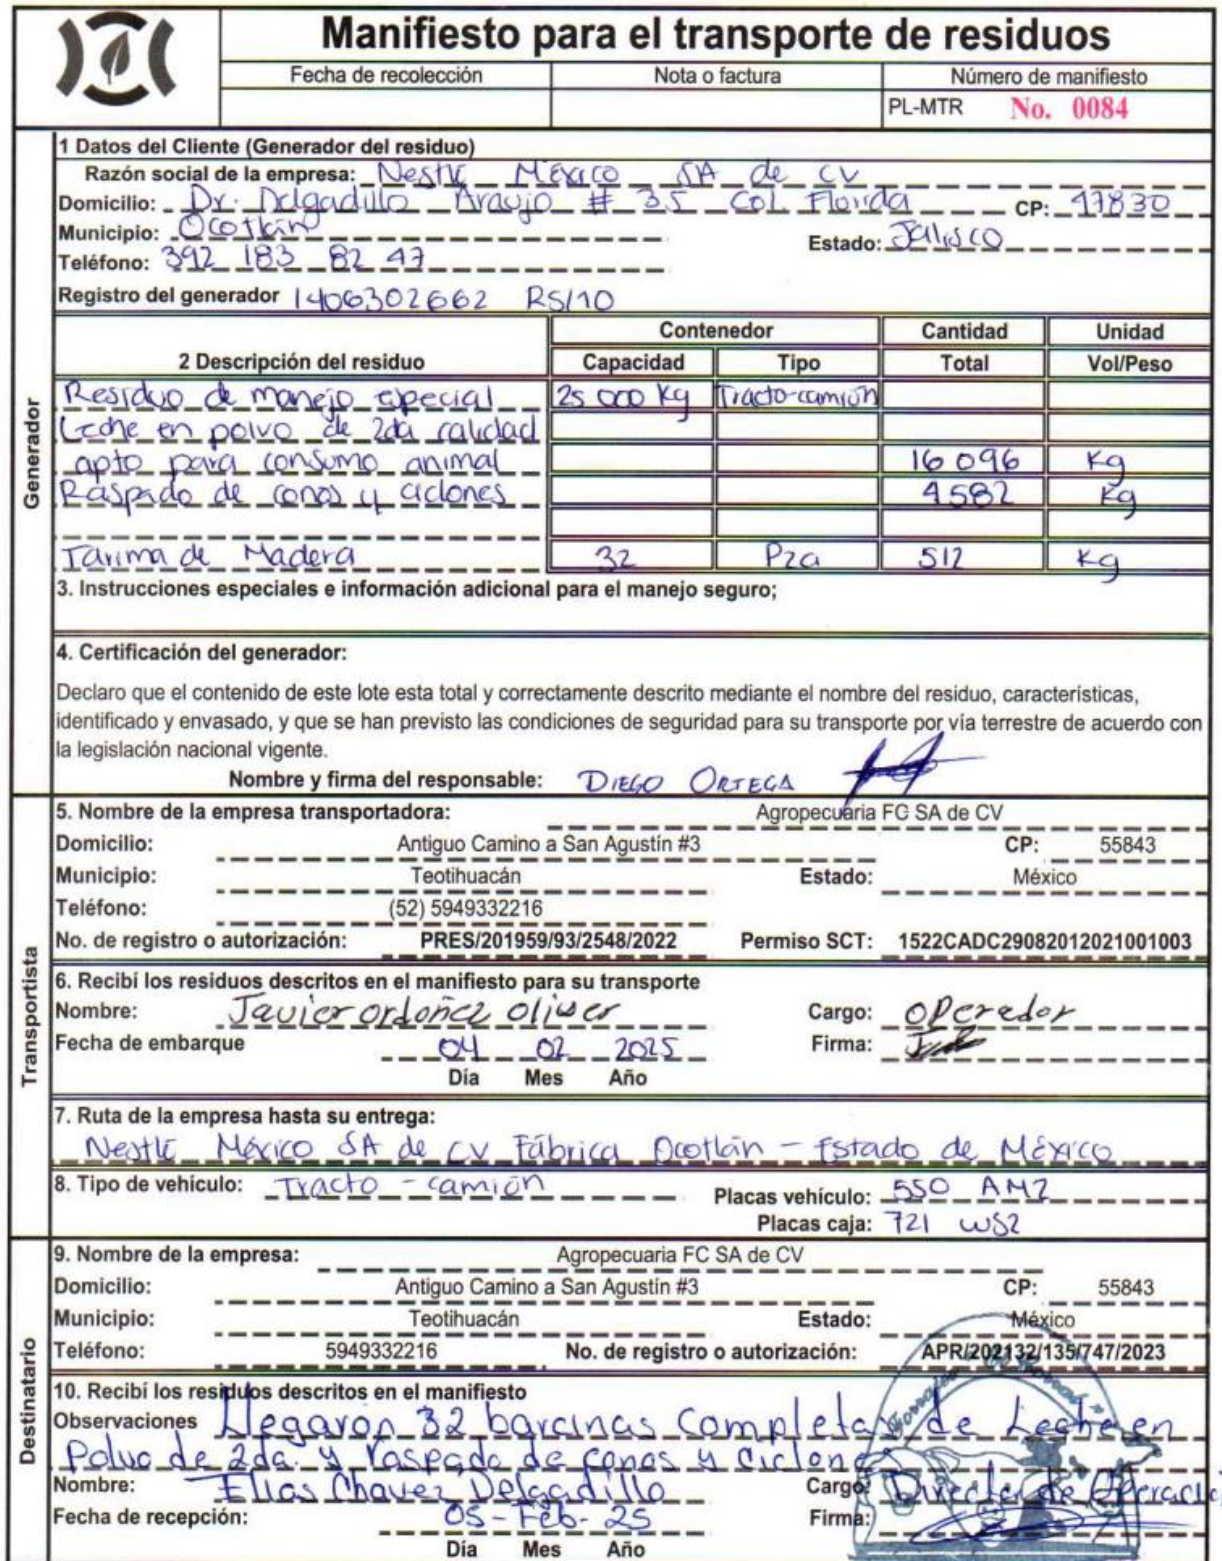 Manifiesto para el transporte de residuos
Fecha de recolección Nota o factura Número de manifiesto
PL-MTR No. 0084
Generador
1 Datos del Cliente (Generador del residuo)
Razón social de la empresa: Nestlé México SA de CV
Domicilio: Dr. Delgadillo Araujo # 35 Col. Florida CP: 47830
Municipio: Ocotlán Estado: Jalisco
Teléfono: 392 183 82 47
Registro del generador 1406302662 RS/10
Contenedor Cantidad Unidad
2 Descripción del residuo Capacidad Tipo Total Vol/Peso
Residuo de manejo especial 25 000 Kg Tracto-camión
Leche en polvo de 2da calidad
apto para consumo animal 16 096 Kg
Raspado de conos y ciclones 4 582 Kg
Tarima de Madera 32 Pza 512 Kg
3. Instrucciones especiales e información adicional para el manejo seguro;
4. Certificación del generador:
Declaro que el contenido de este lote esta total y correctamente descrito mediante el nombre del residuo, características,
identificado y envasado, y que se han previsto las condiciones de seguridad para su transporte por vía terrestre de acuerdo con
la legislación nacional vigente.
Nombre y firma del responsable: DIEGO ORTEGA
Transportista
5. Nombre de la empresa transportadora: Agropecuaria FC SA de CV
Domicilio: Antiguo Camino a San Agustín #3 CP: 55843
Municipio: Teotihuacán Estado: México
Teléfono: (52) 5949332216
No. de registro o autorización: PRES/201959/93/2548/2022 Permiso SCT: 1522CADC29082012021001003
6. Recibí los residuos descritos en el manifiesto para su transporte
Nombre: Javier ordoñez oliver Cargo: Operador
Fecha de embarque 04 02 2025 Firma:
Día Mes Año
7. Ruta de la empresa hasta su entrega:
Nestlé México SA de CV Fábrica Ocotlán - Estado de México
8. Tipo de vehículo: Tracto - camión Placas vehículo: 550 AM2
Placas caja: 721 WS2
Destinatario
9. Nombre de la empresa: Agropecuaria FC SA de CV
Domicilio: Antiguo Camino a San Agustín #3 CP: 55843
Municipio: Teotihuacán Estado: México
Teléfono: 5949332216 No. de registro o autorización: APR/202132/135/747/2023
10. Recibí los residuos descritos en el manifiesto
Observaciones Llegaron 32 barcinas Completas de Leche en
Polvo de 2da. y raspado de conos y ciclones
Nombre: Elias Chavez Delgadillo Cargo: Director de Operació
Fecha de recepción: 05-Feb-25 Firma:
Día Mes Año